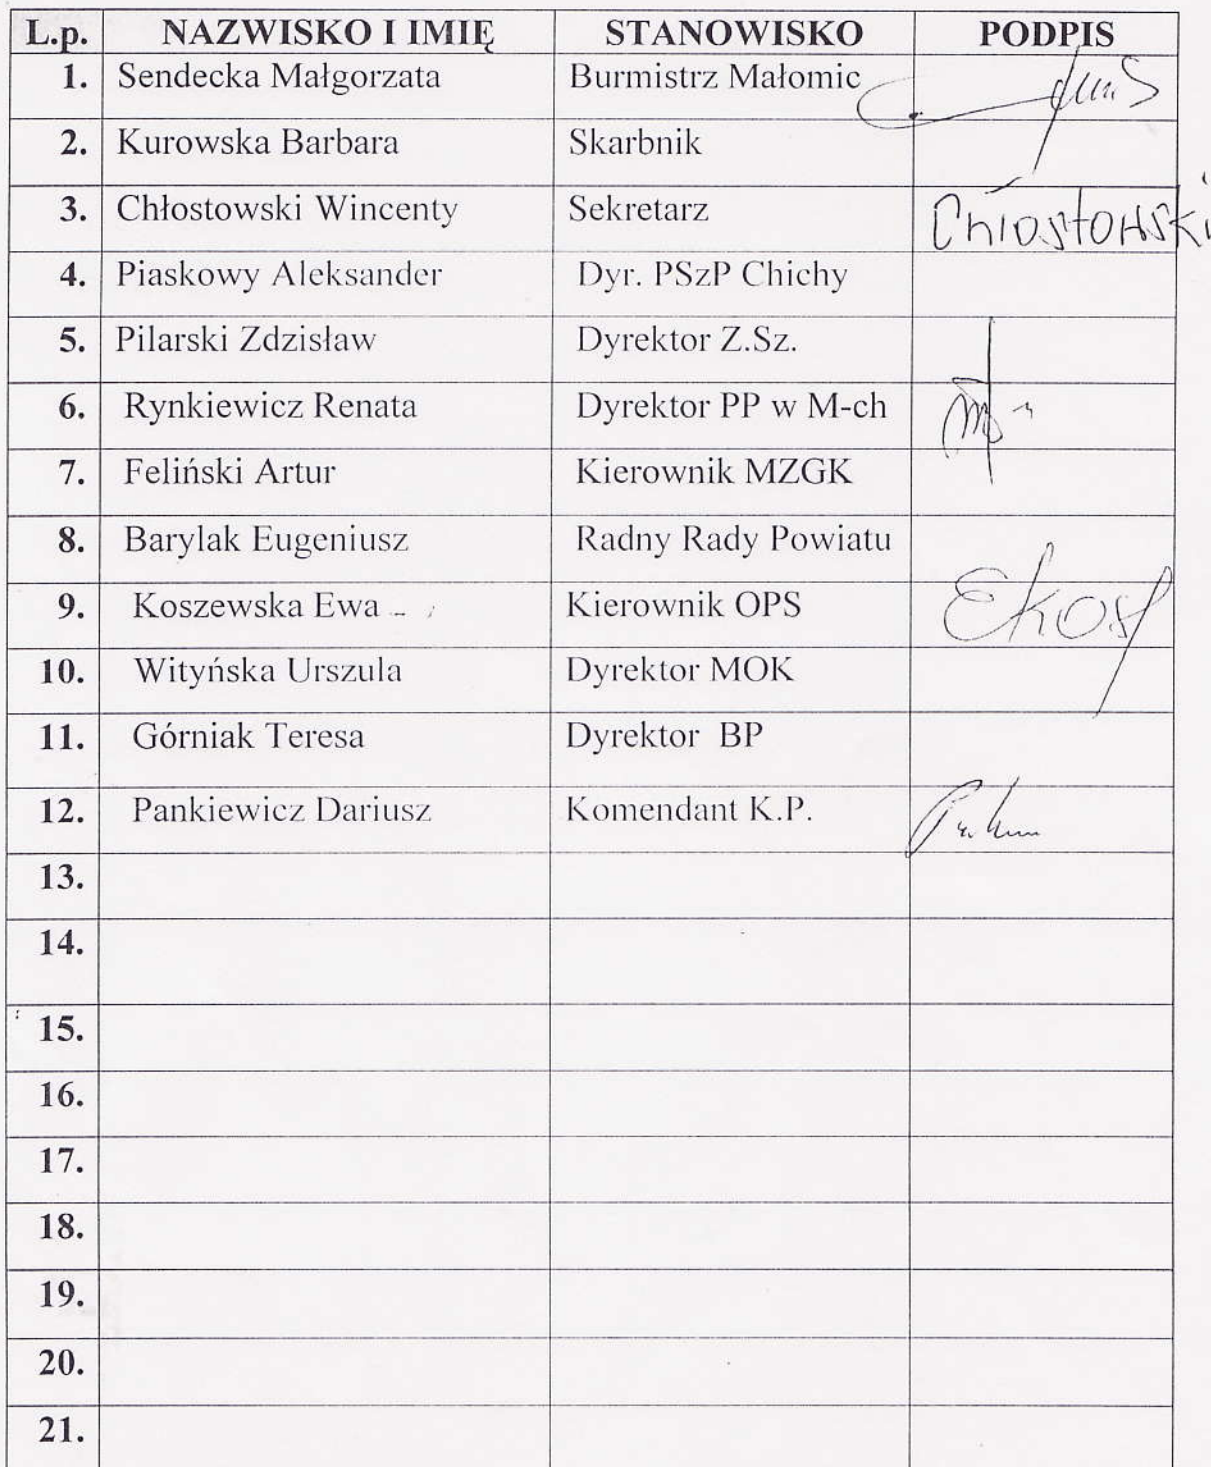 L.p. NAZWISKO I IMIĘ STANOWISKO PODPIS
1. Sendecka Małgorzata Burmistrz Małomic
2. Kurowska Barbara Skarbnik
3. Chłostowski Wincenty Sekretarz Chłostowski
4. Piaskowy Aleksander Dyr. PSzP Chichy
5. Pilarski Zdzisław Dyrektor Z.Sz.
6. Rynkiewicz Renata Dyrektor PP w M-ch
7. Feliński Artur Kierownik MZGK
8. Barylak Eugeniusz Radny Rady Powiatu
9. Koszewska Ewa Kierownik OPS
10. Wityńska Urszula Dyrektor MOK
11. Górniak Teresa Dyrektor BP
12. Pankiewicz Dariusz Komendant K.P.
13.
14.
15.
16.
17.
18.
19.
20.
21.